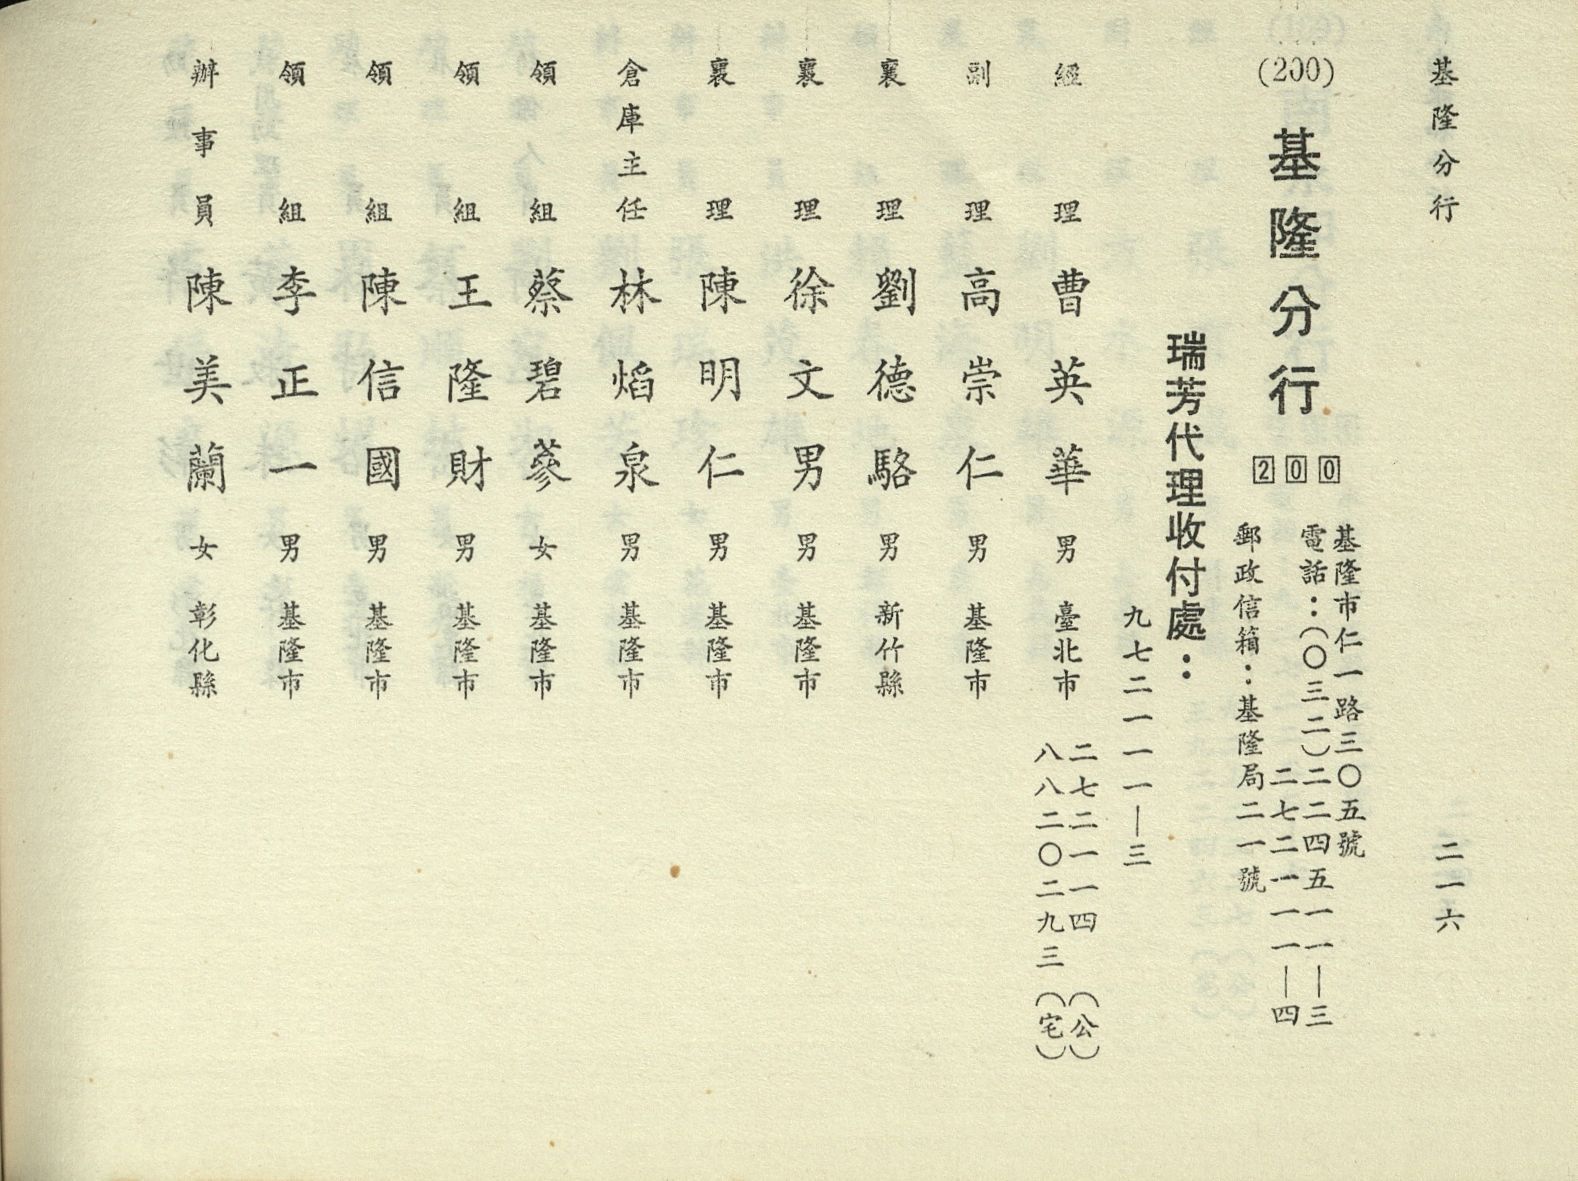 基隆分行　二一六
(200)　基隆分行　200
基隆市仁一路三〇五號
電話：(〇三二)二二四五一一一—三
二七二一一一—四
郵政信箱：基隆局二一號
瑞芳代理收付處：
九七二一一一—三
經理　曹英華　男　臺北市　二七二一一四(公)
八八二〇二九三(宅)
副理　高崇仁　男　基隆市
襄理　劉德駱　男　新竹縣
襄理　徐文男　男　基隆市
襄理　陳明仁　男　基隆市
倉庫主任　林焰泉　男　基隆市
領組　蔡碧蔘　女　基隆市
領組　王隆財　男　基隆市
領組　陳信國　男　基隆市
領組　李正一　男　基隆市
辦事員　陳美蘭　女　彰化縣